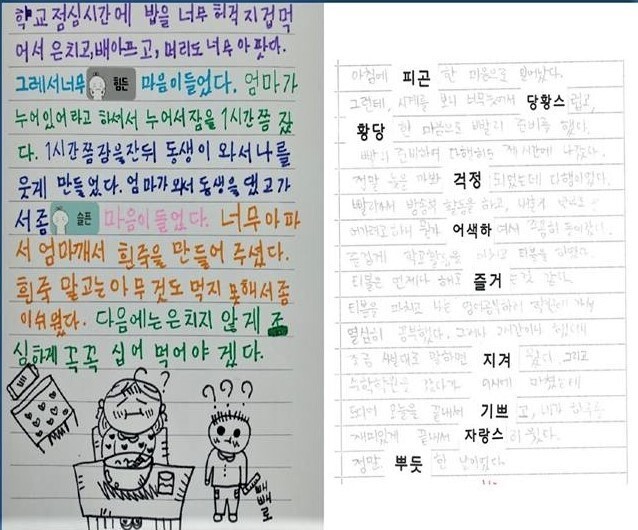 학교점심시간에 밥을 너무 허겁지겁먹
어서 은치고, 배아프고, 머리도 너무 아팟다.
그레서 너무 힘든 마음이들었다. 엄마가
누어있어라고 하셔서 누어서잠을 1시간쯤 잤
다. 1시간쯤잠을잔뒤 동생이 와서 나를
웃게 만들었다. 엄마가와서 동생을 댔고가
서좀 슬픈 마음이들었다. 너무아파
서 엄마깨서 흰죽을 만들어 주셨다.
흰죽 말고는 아무것도 먹지 못해서좀
아쉬웠다. 다음에는은치지 않게 조
심하게 꼭꼭 십어 먹어야 겠다.
???
???
빼빼로
아침에 피곤 한 마음으로 일어났다.
그런데, 시계를 보니 너무 당황스 럽고,
황당 한 마음으로 빨리 준비를 했다.
빨리 준비하여 다행히도 제시간에
정말 늦을까봐 걱정 되었는데 다행이었다.
빨리가서 방송부 활동을 하고,
어색하
즐겁게 학교 티볼을
티볼은 언제나 해도 즐거
티볼을 마치고 나는 영어공부하러
열심히 공부했다. 그러나 2시간이나
조금 사실대로 말하면 지겨 웠다 그리고
수학학원을
오늘을 끝내서 기쁘 고,
재미있게 끝내서 자랑스 러웠다.
정말 뿌듯 한 날이었다.